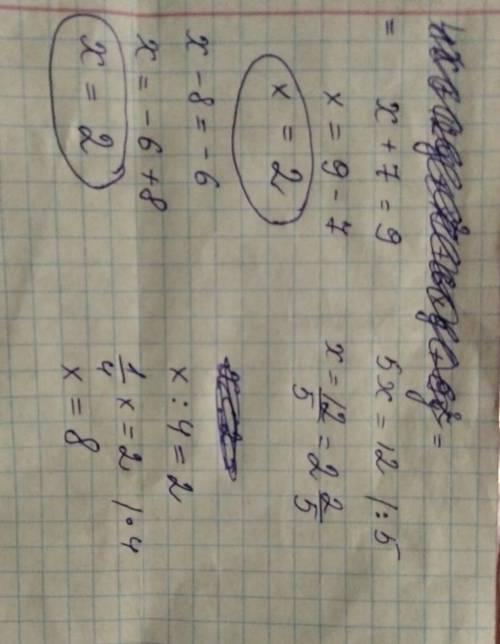 =
x + 7 = 9
x = 9 - 7
x = 2
x - 8 = -6
x = -6 + 8
x = 2
5x = 12 | : 5
x = 12/5 = 2 2/5
x : 4 = 2
1/4 x = 2 | · 4
x = 8